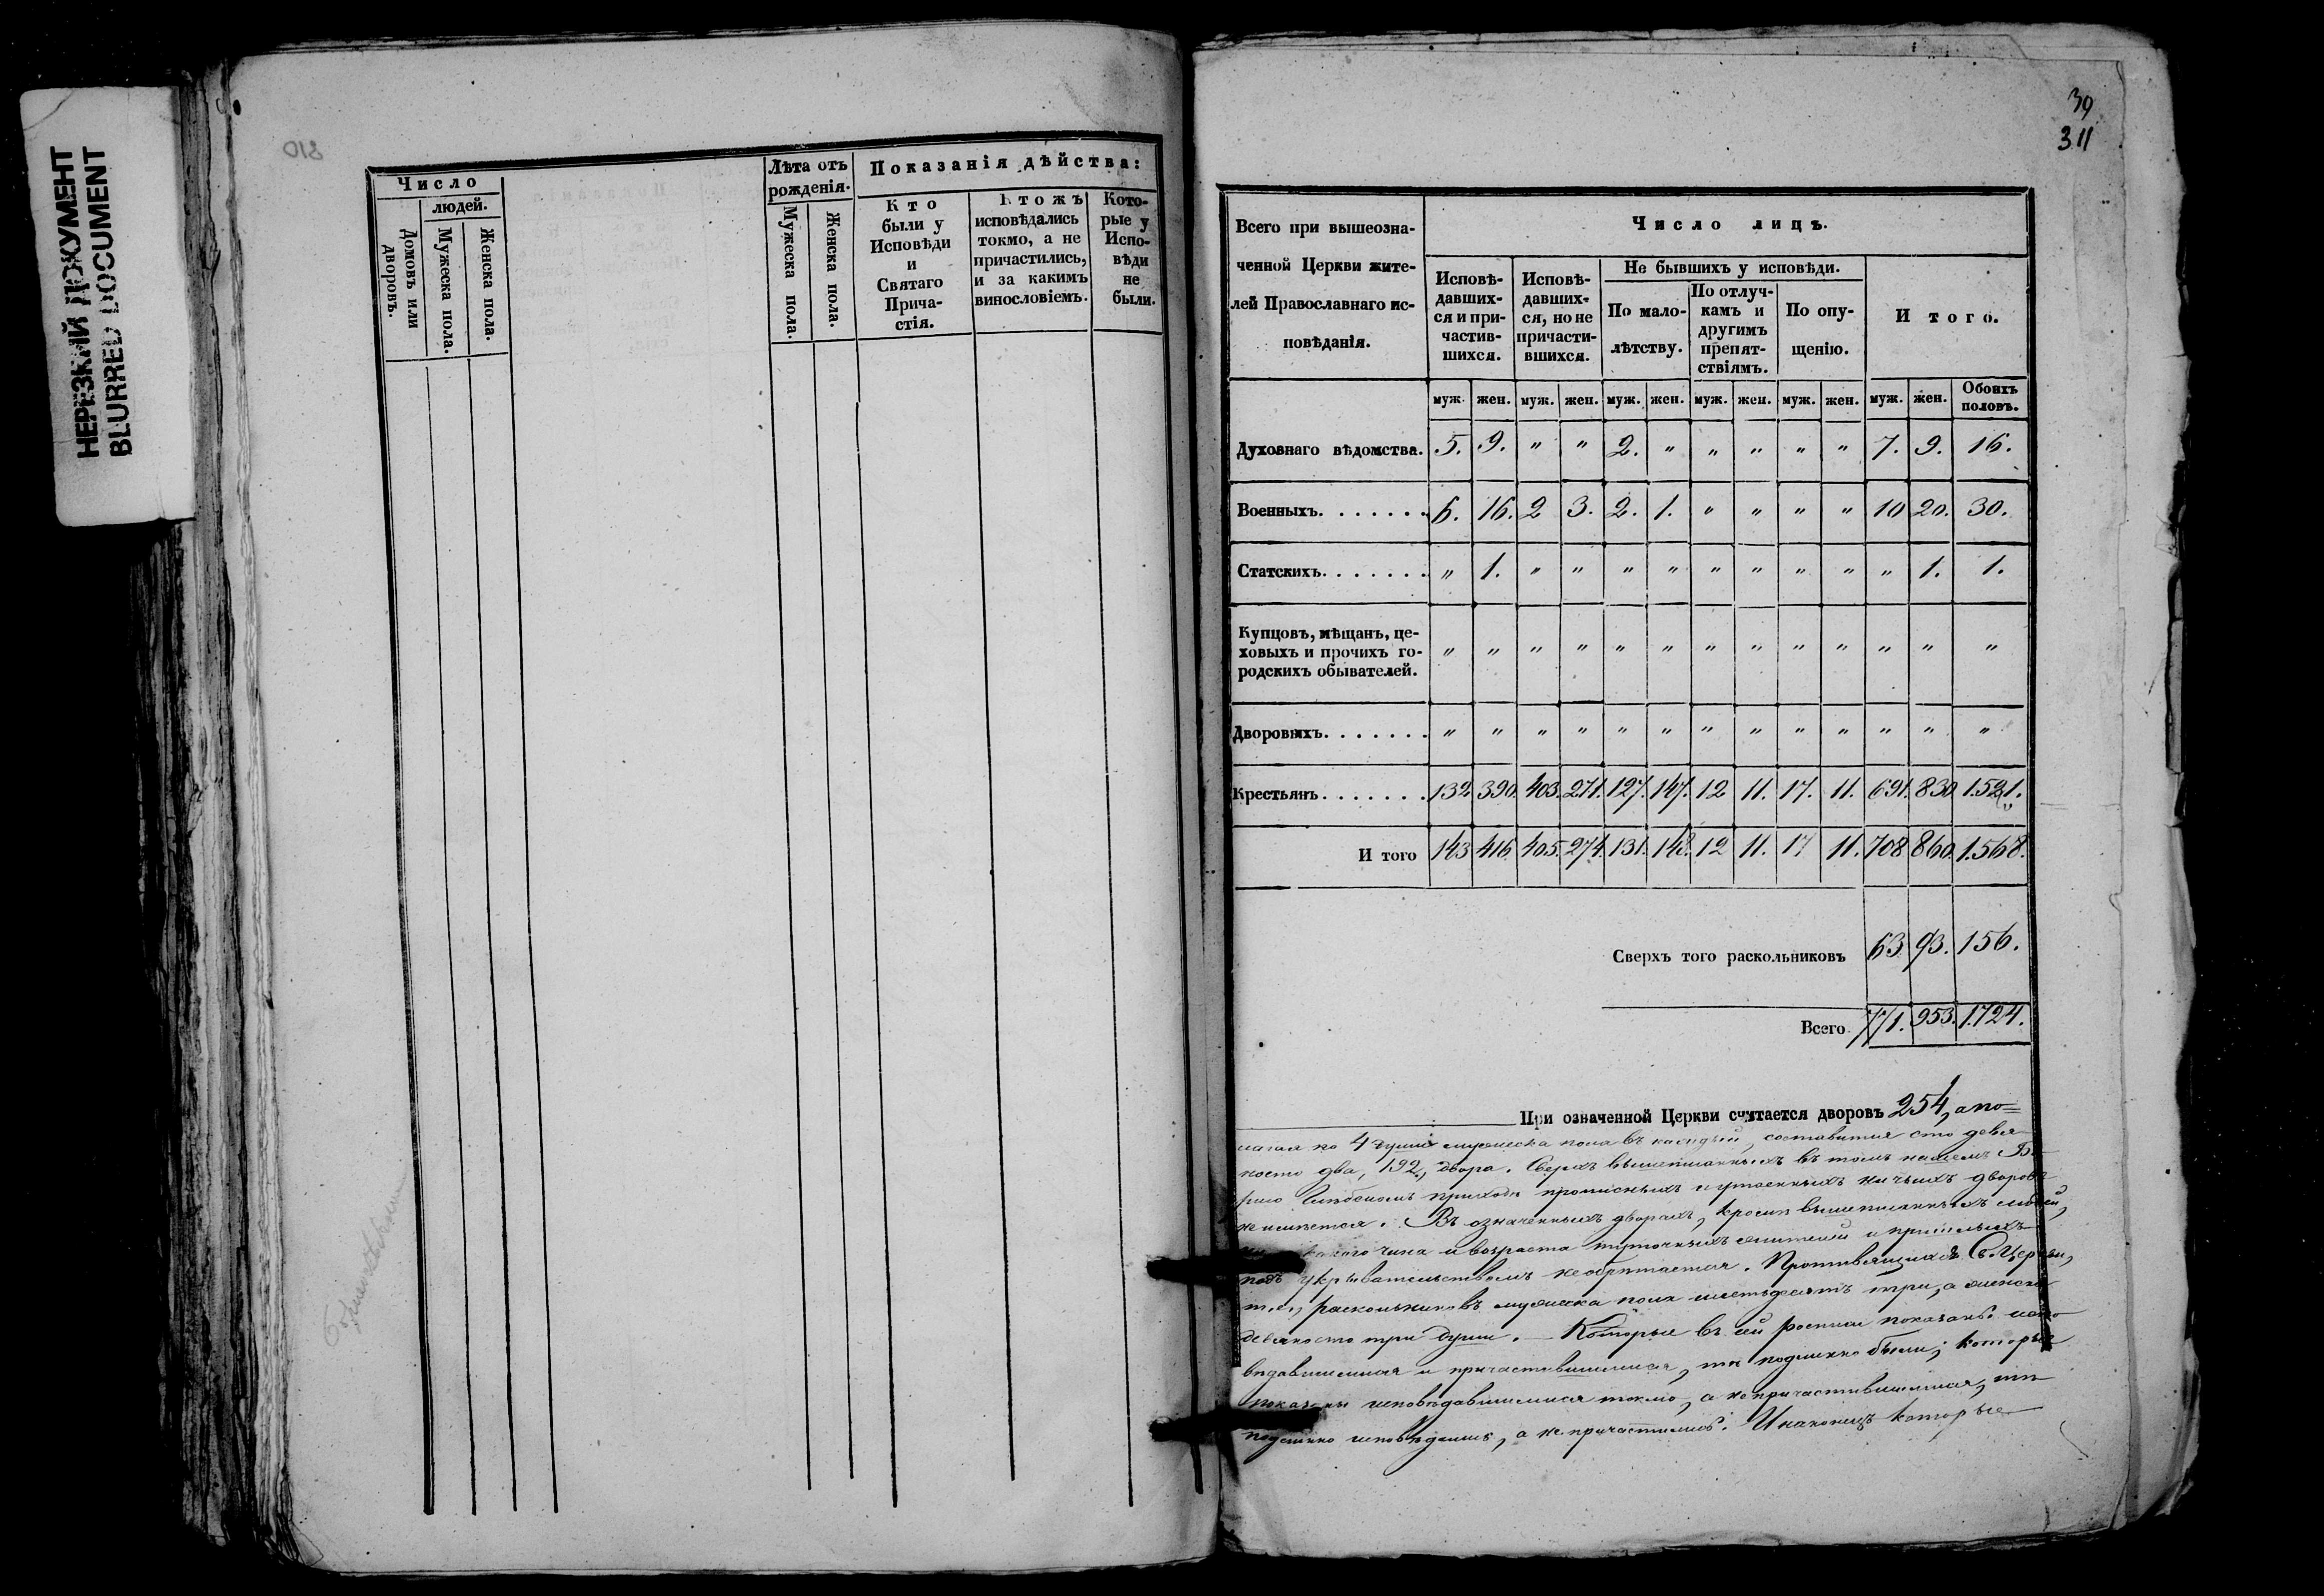 НЕРЕЗКИЙ ДОКУМЕНТ
BLURRED DOCUMENT
310
Число
людей.
Домовъ или дворовъ.
Мужеска пола.
Женска пола.
Лѣта отъ рожденія.
Мужеска пола.
Женска пола.
Показанія дѣйства:
Кто были у Исповѣди и Святаго Прича-стія.
Ктожъ исповѣдались токмо, а не причастились, и за какимъ винословіемъ.
Кото-рые у Испо-вѣди не были.
39
311
Всего при вышеозна-
ченной Церкви жите-
лей Православнаго ис-
повѣданія.
Число лицъ.
Исповѣ-давших-ся и при-частив-шихся.
Исповѣ-давших-ся, но не причасти-вшихся.
Не бывшихъ у исповѣди.
По мало-лѣтству.
По отлуч-камъ и другимъ препят-ствіямъ.
По опу-щенію.
Итого.
муж. жен. муж. жен. муж. жен. муж. жен. муж. жен. муж. жен. Обоихъ половъ.
Духовнаго вѣдомства. 5. 9. " " 2. " " " " " 7. 9. 16.
Военныхъ. . . . . . . 6. 16. 2 3. 2. 1. " " " " 10 20. 30.
Статскихъ. . . . . . . " 1. " " " " " " " " " 1. 1.
Купцовъ, мѣщанъ, це-
ховыхъ и прочихъ го- " " " " " " " " " " " " "
родскихъ обывателей.
Дворовыхъ. . . . . . . " " " " " " " " " " " " "
Крестьянъ. . . . . . . 132 390. 403. 271. 127. 147. 12 11. 17. 11. 691. 830. 1.521.
И того 143 416. 405. 274. 131. 148. 12 11. 17 11. 708 860. 1.568.
Сверхъ того раскольниковъ 63 93. 156.
Всего 771. 953. 1.724.
При означенной Церкви считается дворовъ 254, а по=
лагая по 4 души мужеска пола въ каждый, составится сто девя
носто два, 192, двора. Сверхъ вышеписанныхъ въ томъ нашемъ
приходѣ прописныхъ и утаенныхъ ничьихъ дворовъ
неимѣется. Въ означенныхъ дворахъ, кромѣ вышеписанныхъ людей,
чина и возраста тутошныхъ жителей и пришлыхъ
подъ укрывательствомъ необрѣтается. Противящихся Св. Церкви,
т. е. раскольниковъ мужеска пола шестьдесятъ три, а женска
девяносто три души. — Которые въ сей росписи показаны испо
вѣдавшимися и причастившимися, тѣ подлинно были; которые
показаны исповѣдавшимися токмо, а непричастившимися, тѣ
подлинно исповѣдались, а не причастились. И наконецъ которые